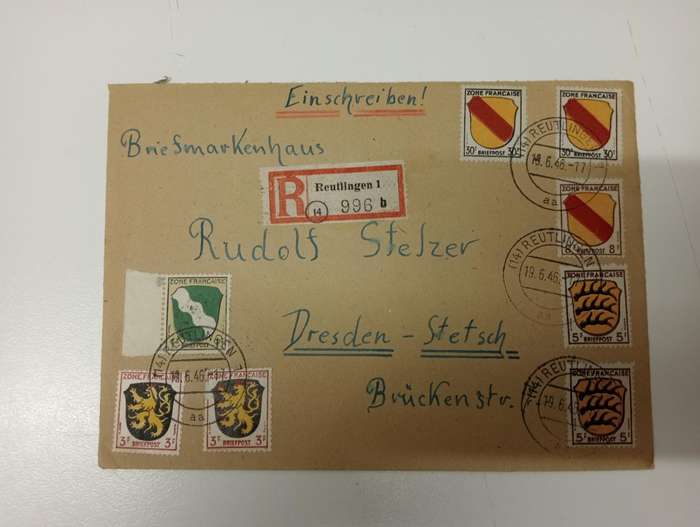 Einschreiben!
Briefmarkenhaus
R
Reutlingen 1
14 996 b
Rudolf Stelzer
Dresden - Stetsch
Brückenstr.
ZONE FRANCAISE
30F BRIEFPOST 30F
ZONE FRANCAISE
30F BRIEFPOST 30F
(14) REUTLINGEN
19.6.46.-17
aa
ZONE FRANCAISE
8F
(14) REUTLINGEN
19.6.46.
aa
ZONE FRANCAISE
5F BRIEFPOST 5F
ZONE FRANCAISE
5F BRIEFPOST 5F
(14) REUTLINGEN
19.6.46
ZONE FRANCAISE
(14) REUTLINGEN
19.6.46.-17
aa
ZONE FRANCAISE
3F BRIEFPOST 3F
ZONE FRANCAISE
3F BRIEFPOST 3F